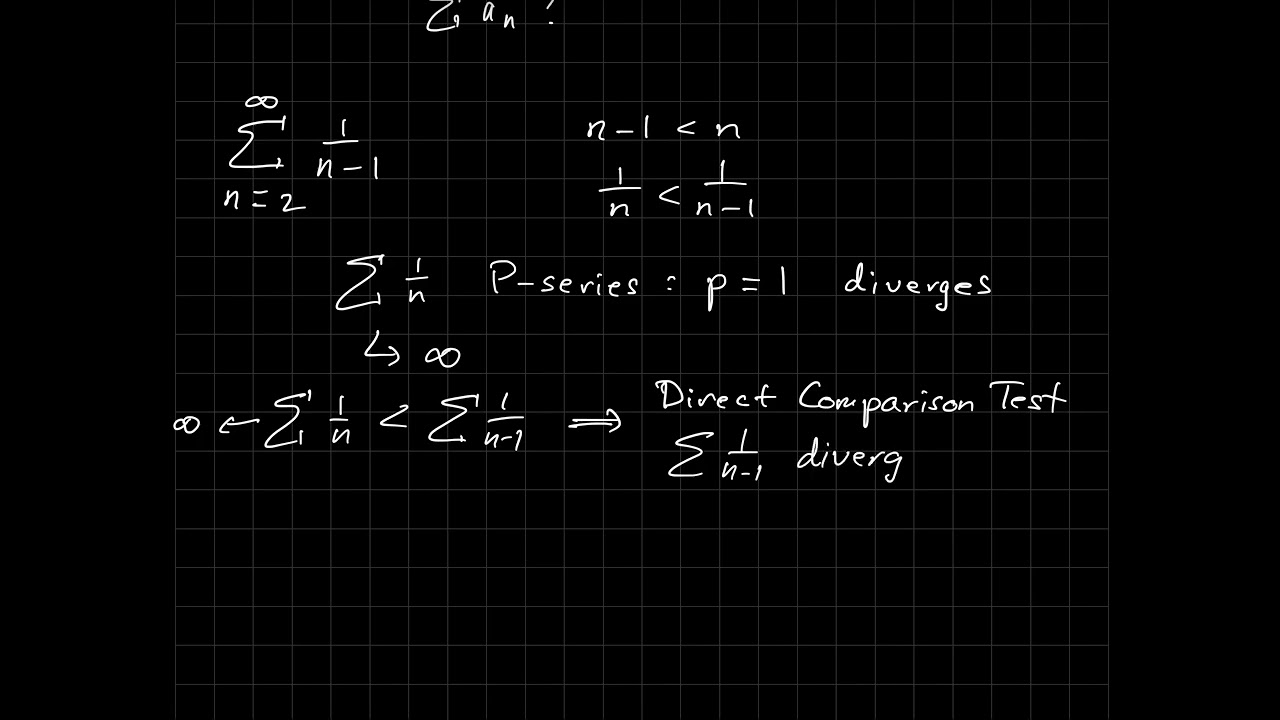 ∑ aₙ ?
∞
∑ 1/(n−1)
n = 2
n−1 < n
1/n < 1/(n−1)
∑ 1/n P-series : p = 1 diverges
↳ ∞
∞ ← ∑ 1/n < ∑ 1/(n−1) ⟹ Direct Comparison Test
∑ 1/(n−1) diverg